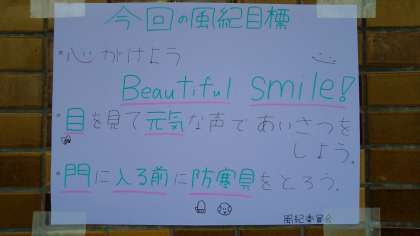 今回の風紀目標
・心がけよう
Beautiful smile!
・目を見て元気な声であいさつを
しよう.
・門に入る前に防寒具をとろう.
風紀委員会